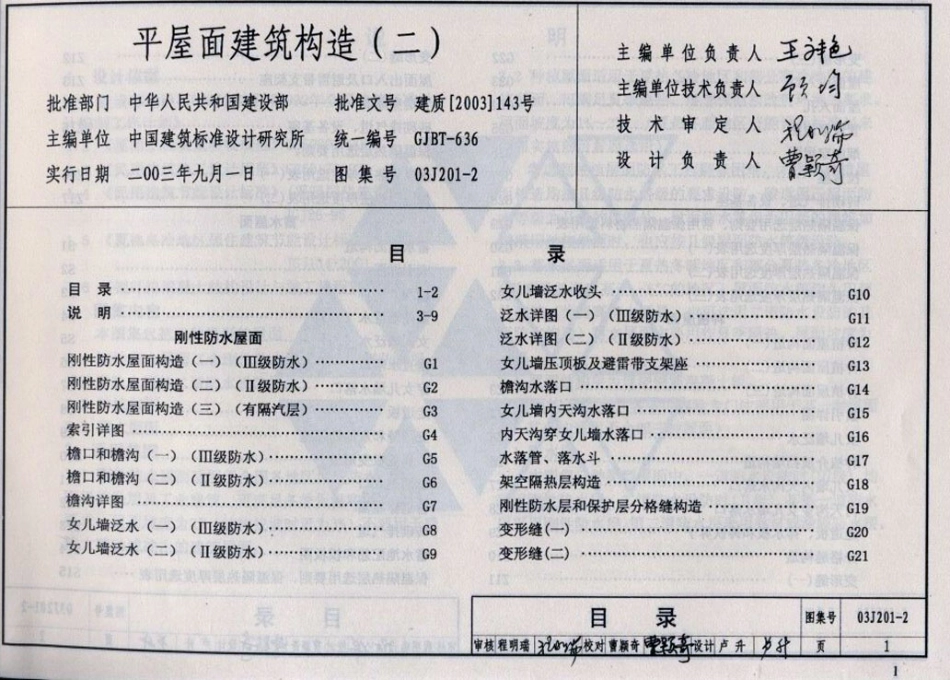 平屋面建筑构造(二)
批准部门 中华人民共和国建设部 批准文号 建质[2003]143号
主编单位 中国建筑标准设计研究所 统一编号 GJBT-636
实行日期 二00三年九月一日 图集号 03J201-2
主编单位负责人
主编单位技术负责人
技术审定人
设计负责人 曹颖奇
目 录
目 录 1-2
说 明 3-9
刚性防水屋面
刚性防水屋面构造(一)(Ⅲ级防水) G1
刚性防水屋面构造(二)(Ⅱ级防水) G2
刚性防水屋面构造(三)(有隔汽层) G3
索引详图 G4
檐口和檐沟(一)(Ⅲ级防水) G5
檐口和檐沟(二)(Ⅱ级防水) G6
檐沟详图 G7
女儿墙泛水(一)(Ⅲ级防水) G8
女儿墙泛水(二)(Ⅱ级防水) G9
女儿墙泛水收头 G10
泛水详图(一)(Ⅲ级防水) G11
泛水详图(二)(Ⅱ级防水) G12
女儿墙压顶板及避雷带支架座 G13
檐沟水落口 G14
女儿墙内天沟水落口 G15
内天沟穿女儿墙水落口 G16
水落管、落水斗 G17
架空隔热层构造 G18
刚性防水层和保护层分格缝构造 G19
变形缝(一) G20
变形缝(二) G21
目 录 图集号 03J201-2
审核 程明瑞 校对 曹颖奇 曹颖奇 设计 卢升 页 1
1